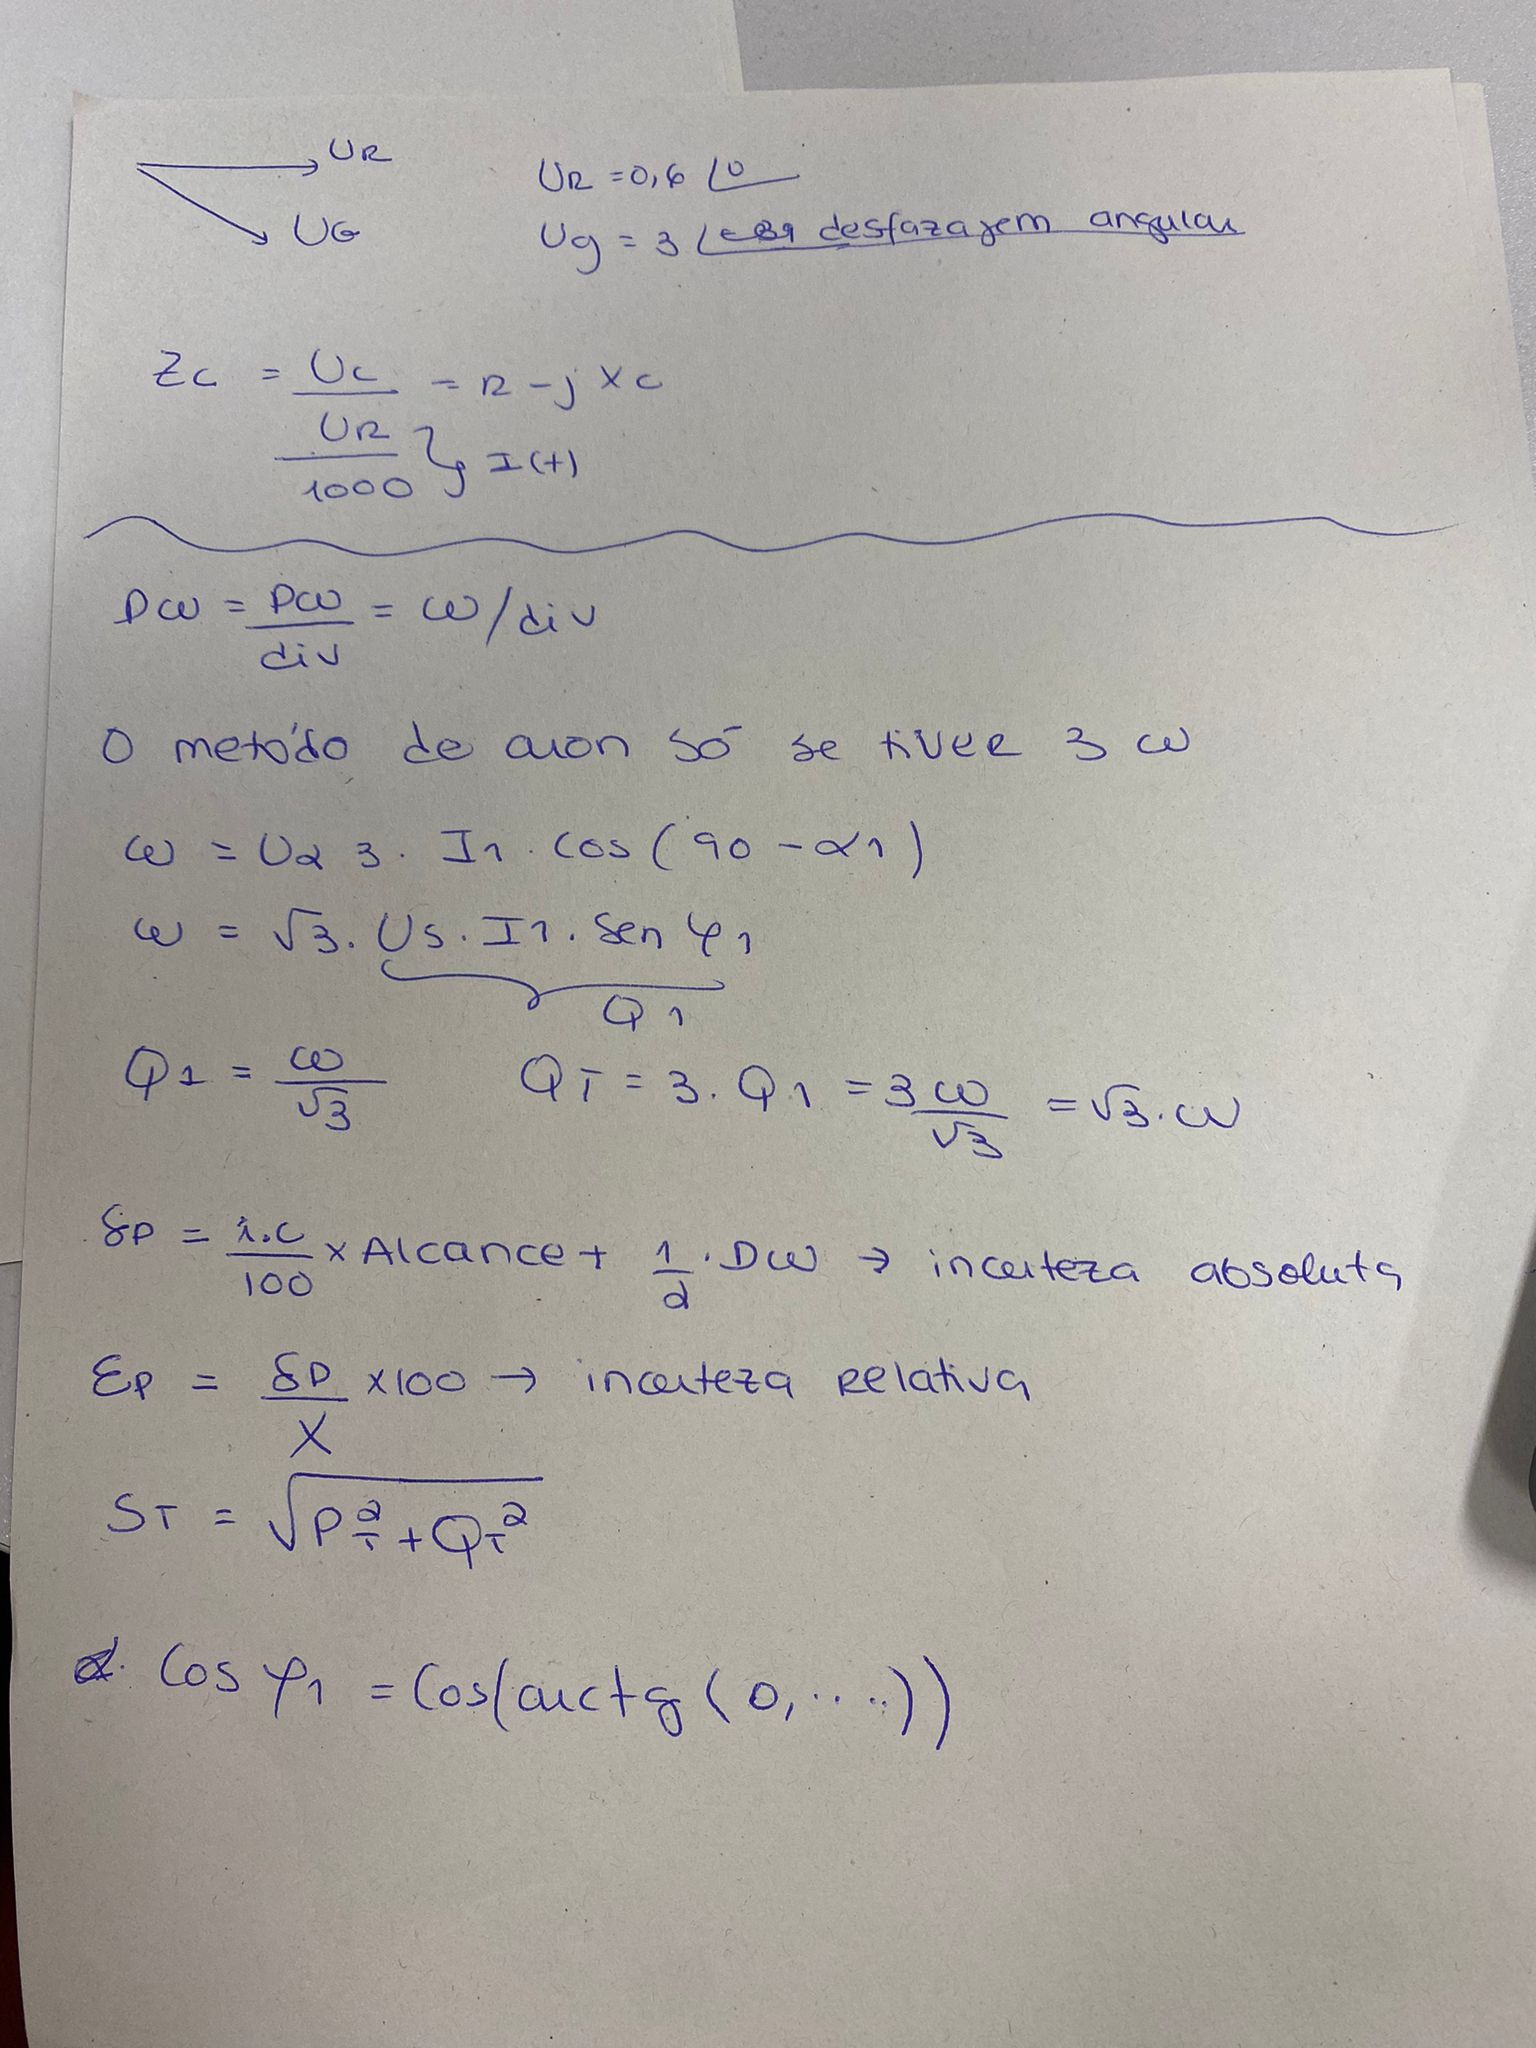 UR
UG
UR = 0,6 ∠0
Ug = 3 ∠ desfazajem angular
Zc = Uc / (UR / 1000) = R - j Xc
} I(t)
Dω = Pω / div = ω/div
O metódo de aron só se tiver 3 ω
ω = U23 . I1 . cos (90 - α1)
ω = √3 . Us . I1 . Sen φ1
Q1
Q1 = ω / √3 QT = 3 . Q1 = 3 ω / √3 = √3 . ω
δP = i.c / 100 x Alcance + 1/2 . Dω → incerteza absoluta
εP = δP / X x100 → incerteza Relativa
ST = √(PT² + QT²)
Cos φ1 = Cos(arctg (0, .....))